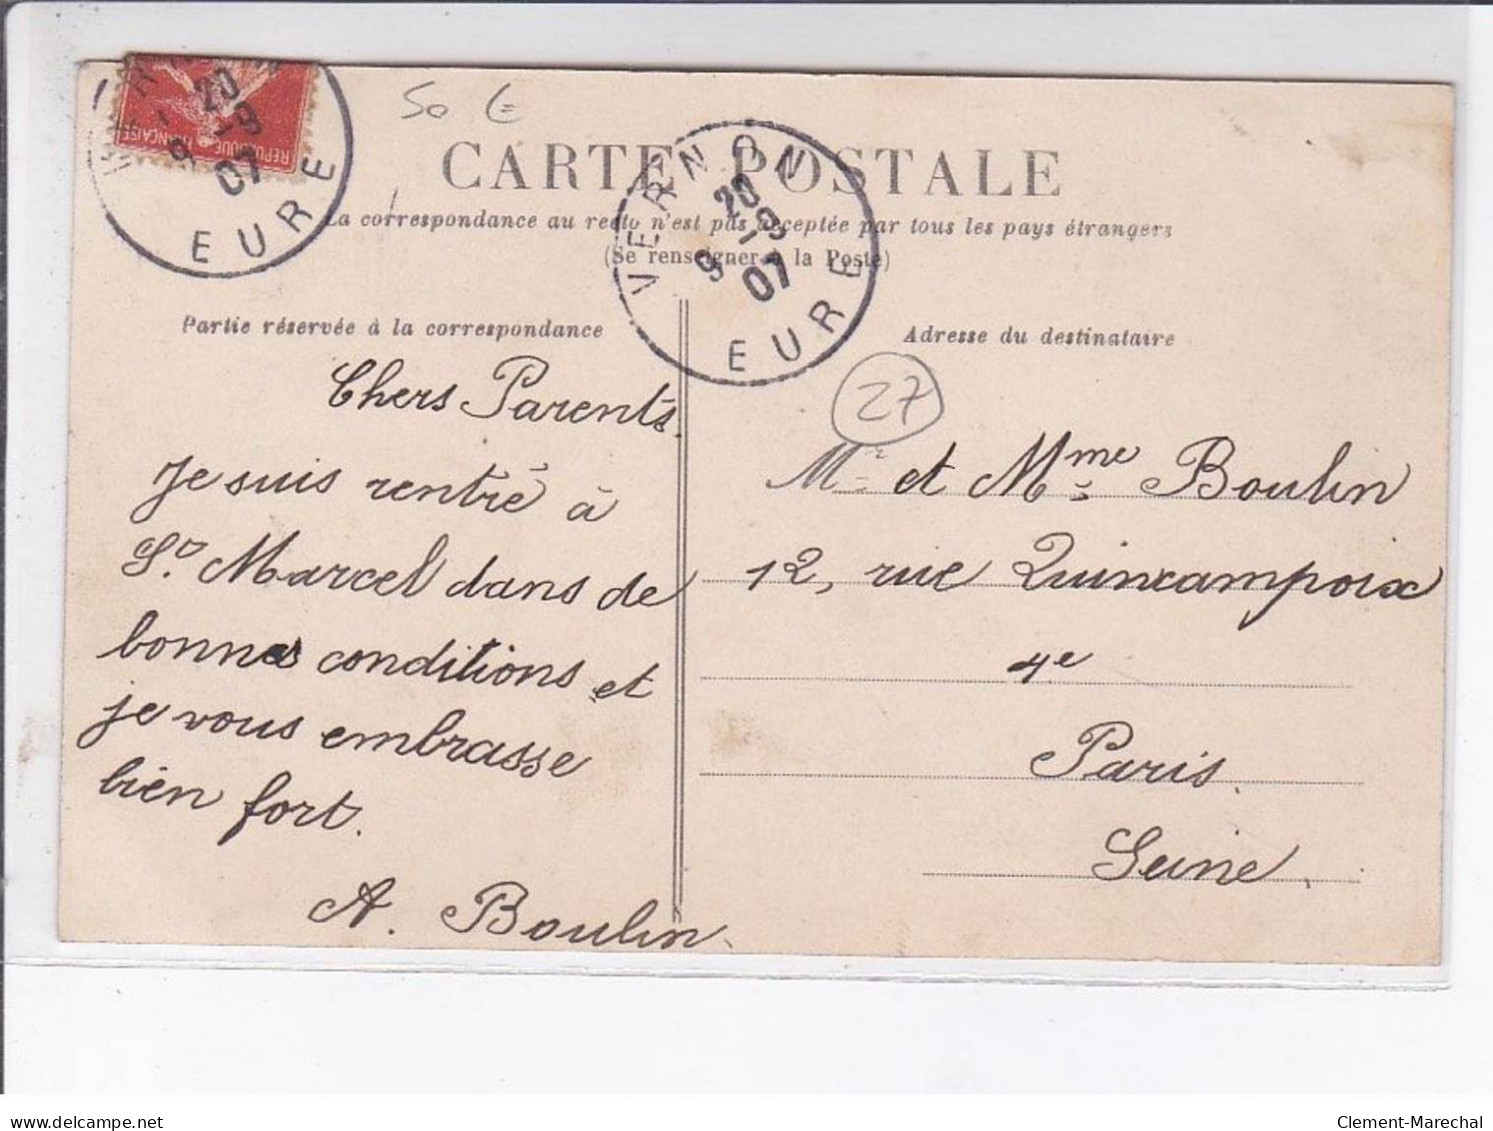 50 €
CARTE POSTALE
La correspondance au recto n'est pas acceptée par tous les pays étrangers
(Se renseigner à la Poste)
REPUBLIQUE FRANÇAISE
20 -9
9 07
EURE
VERNON
20 -9
9 07
EURE
Partie réservée à la correspondance
Chers Parents.
Je suis rentré à
St Marcel dans de
bonnes conditions et
je vous embrasse
bien fort.
A. Boulin.
Adresse du destinataire
27
Mr et Mme Boulin
12, rue Quincampoix
4e
Paris.
Seine.
delcampe.net
Clement-Marechal